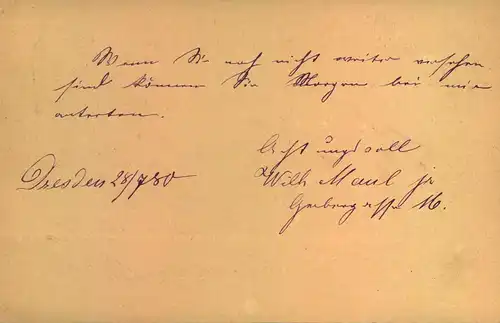 Wenn Sie noch nicht weiter versehen
sind können Sie Morgen bei mir
antreten.
Achtungsvoll
Dresden 28/7 80
Wilh Maul jr
Gerbergasse 16.